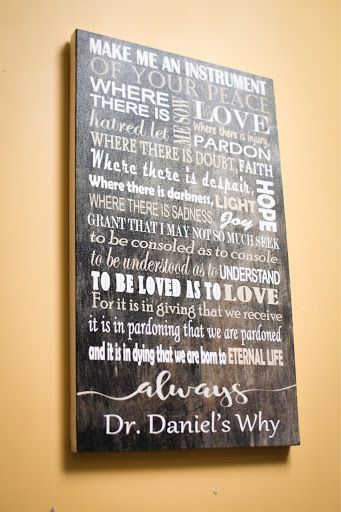 MAKE ME AN INSTRUMENT
OF YOUR PEACE
WHERE
THERE IS
hatred let
ME SOW
LOVE
Where there is injury
PARDON
WHERE THERE IS DOUBT, FAITH
Where there is despair,
HOPE
Where there is darkness, LIGHT
WHERE THERE IS SADNESS, Joy
GRANT THAT I MAY NOT SO MUCH SEEK
to be consoled as to console
to be understood as to UNDERSTAND
TO BE LOVED AS TO LOVE
For it is in giving that we receive
it is in pardoning that we are pardoned
and it is in dying that we are born to ETERNAL LIFE
always
Dr. Daniel's Why